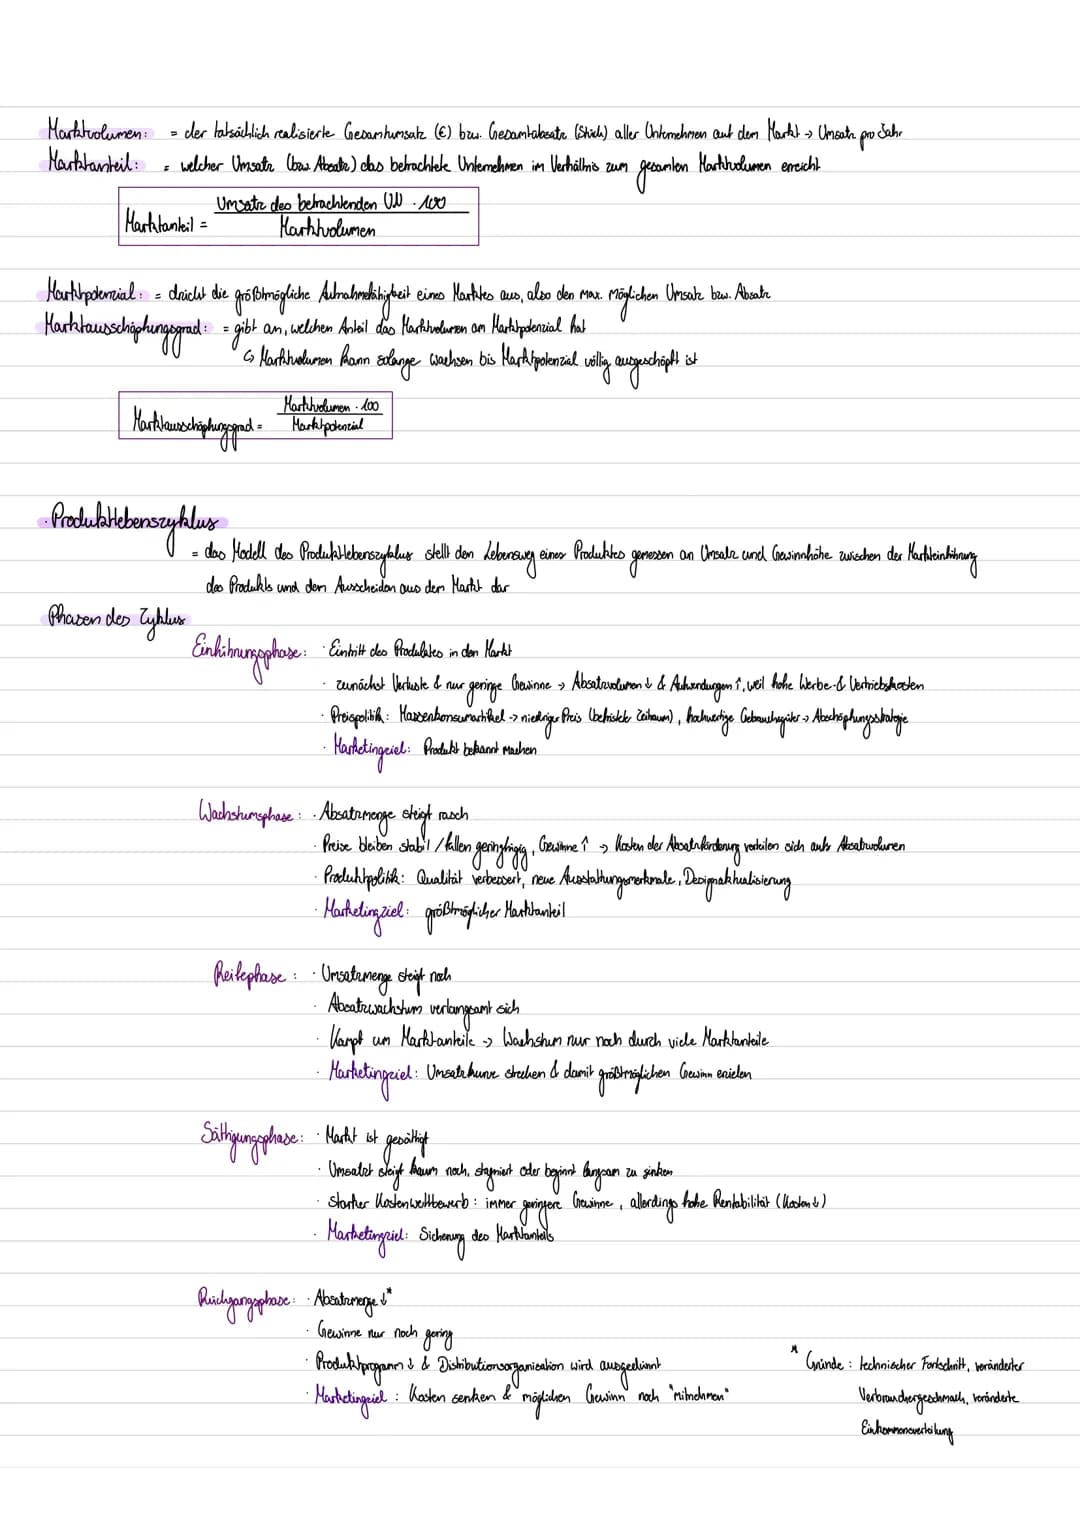 Marktvolumen: = der tatsächlich realisierte Gesamtumsatz (€) bzw. Gesamtabsatz (Stück) aller Unternehmen auf dem Markt → Umsatz pro Jahr
Marktanteil: = welcher Umsatz (bzw. Absatz) das betrachtete Unternehmen im Verhältnis zum gesamten Marktvolumen erreicht
Umsatz des betrachtenden UN · 100
Marktanteil =
Marktvolumen
Marktpotenzial: = drückt die größtmögliche Aufnahmefähigkeit eines Marktes aus, also den max. möglichen Umsatz bzw. Absatz
Marktausschöpfungsgrad: = gibt an, welchen Anteil das Marktvolumen am Marktpotenzial hat
↳ Marktvolumen kann solange wachsen bis Marktpotenzial völlig ausgeschöpft ist
Marktvolumen · 100
Marktausschöpfungsgrad =
Marktpotenzial
· Produktlebenszyklus
= das Modell des Produktlebenszyklus stellt den Lebensweg eines Produktes gemessen an Umsatz und Gewinnhöhe zwischen der Markteinführung
des Produkts und dem Ausscheiden aus dem Markt dar
Phasen des Zyklus
Einführungsphase: · Eintritt des Produktes in den Markt
· zunächst Verluste & nur geringe Gewinne → Absatzvolumen ↓ & Aufwendungen ↑, weil hohe Werbe- & Vertriebskosten
· Preispolitik: Massenkonsumartikel → niedriger Preis (befristeter Zeitraum), hochwertige Gebrauchsgüter → Abschöpfungsstrategie
· Marketingziel: Produkt bekannt machen
Wachstumsphase: · Absatzmenge steigt rasch
· Preise bleiben stabil / fallen geringfügig, Gewinne ↑ → Kosten der Absatzförderung verteilen sich aufs Absatzvolumen
· Produktpolitik: Qualität verbessert, neue Ausstattungsmerkmale, Designaktualisierung
· Marketingziel: größtmöglicher Marktanteil
Reifephase: · Umsatzmenge steigt noch
· Absatzwachstum verlangsamt sich
· Kampf um Marktanteile → Wachstum nur noch durch viele Marktanteile
· Marketingziel: Umsatzkurve strecken & damit größtmöglichen Gewinn erzielen
Sättigungsphase: · Markt ist gesättigt
· Umsatz steigt kaum noch, stagniert oder beginnt langsam zu sinken
· starker Kostenwettbewerb: immer geringere Gewinne, allerdings hohe Rentabilität (Kosten ↓)
· Marketingziel: Sicherung des Marktanteils
Rückgangsphase: · Absatzmenge ↓*
· Gewinne nur noch gering
· Produktprogramm ↓ & Distributionsorganisation wird ausgedünnt
* Gründe: technischer Fortschritt, veränderter
· Marketingziel: Kosten senken & möglichen Gewinn noch "mitnehmen"
Verbrauchergeschmack, veränderte
Einkommensverteilung